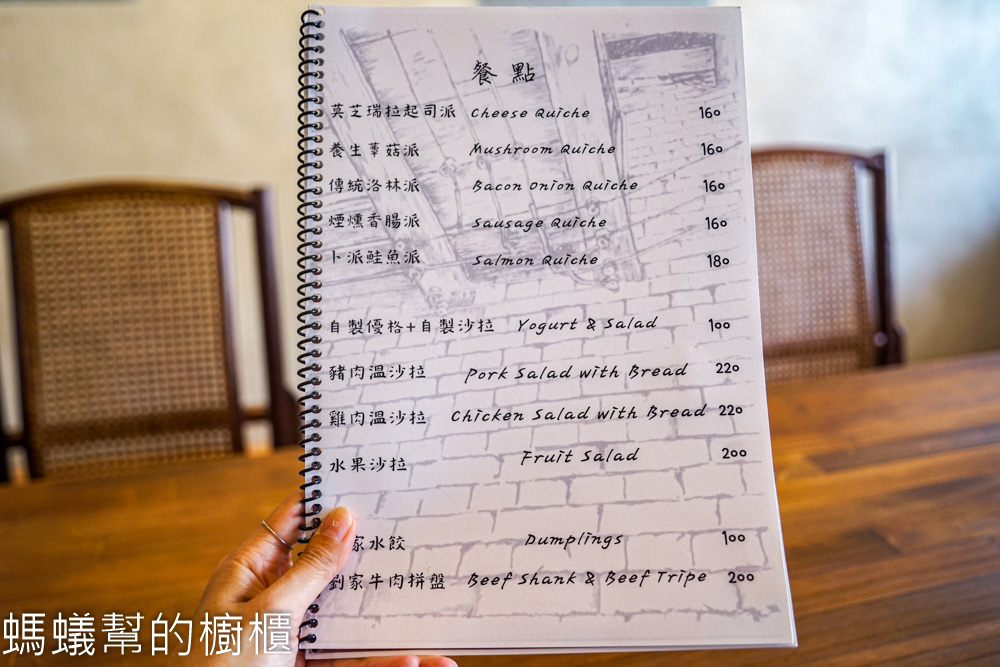 餐點
莫芝瑞拉起司派 Cheese Quiche 160
養生蕈菇派 Mushroom Quiche 160
傳統洛林派 Bacon Onion Quiche 160
煙燻香腸派 Sausage Quiche 160
卜派鮭魚派 Salmon Quiche 180
自製優格+自製沙拉 Yogurt & Salad 100
豬肉溫沙拉 Pork Salad with Bread 220
雞肉溫沙拉 Chicken Salad with Bread 220
水果沙拉 Fruit Salad 200
家水餃 Dumplings 100
劉家牛肉拼盤 Beef Shank & Beef Tripe 200
螞蟻幫的櫥櫃